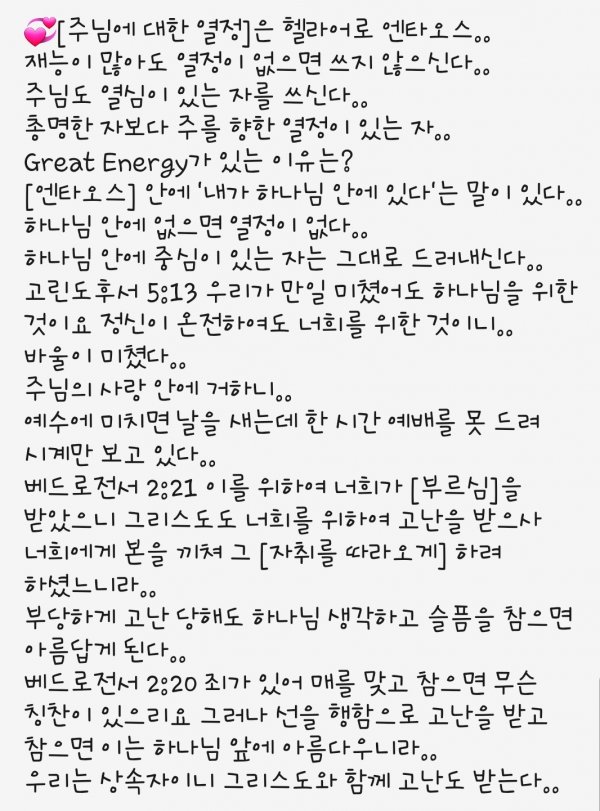 💞[주님에 대한 열정]은 헬라어로 엔타오스..
재능이 많아도 열정이 없으면 쓰지 않으신다..
주님도 열심이 있는 자를 쓰신다..
총명한 자보다 주를 향한 열정이 있는 자..
Great Energy가 있는 이유는?
[엔타오스] 안에 '내가 하나님 안에 있다'는 말이 있다..
하나님 안에 없으면 열정이 없다..
하나님 안에 중심이 있는 자는 그대로 드러내신다..
고린도후서 5:13 우리가 만일 미쳤어도 하나님을 위한
것이요 정신이 온전하여도 너희를 위한 것이니..
바울이 미쳤다..
주님의 사랑 안에 거하니..
예수에 미치면 날을 새는데 한 시간 예배를 못 드려
시계만 보고 있다..
베드로전서 2:21 이를 위하여 너희가 [부르심]을
받았으니 그리스도도 너희를 위하여 고난을 받으사
너희에게 본을 끼쳐 그 [자취를 따라오게] 하려
하셨느니라..
부당하게 고난 당해도 하나님 생각하고 슬픔을 참으면
아름답게 된다..
베드로전서 2:20 죄가 있어 매를 맞고 참으면 무슨
칭찬이 있으리요 그러나 선을 행함으로 고난을 받고
참으면 이는 하나님 앞에 아름다우니라..
우리는 상속자이니 그리스도와 함께 고난도 받는다..